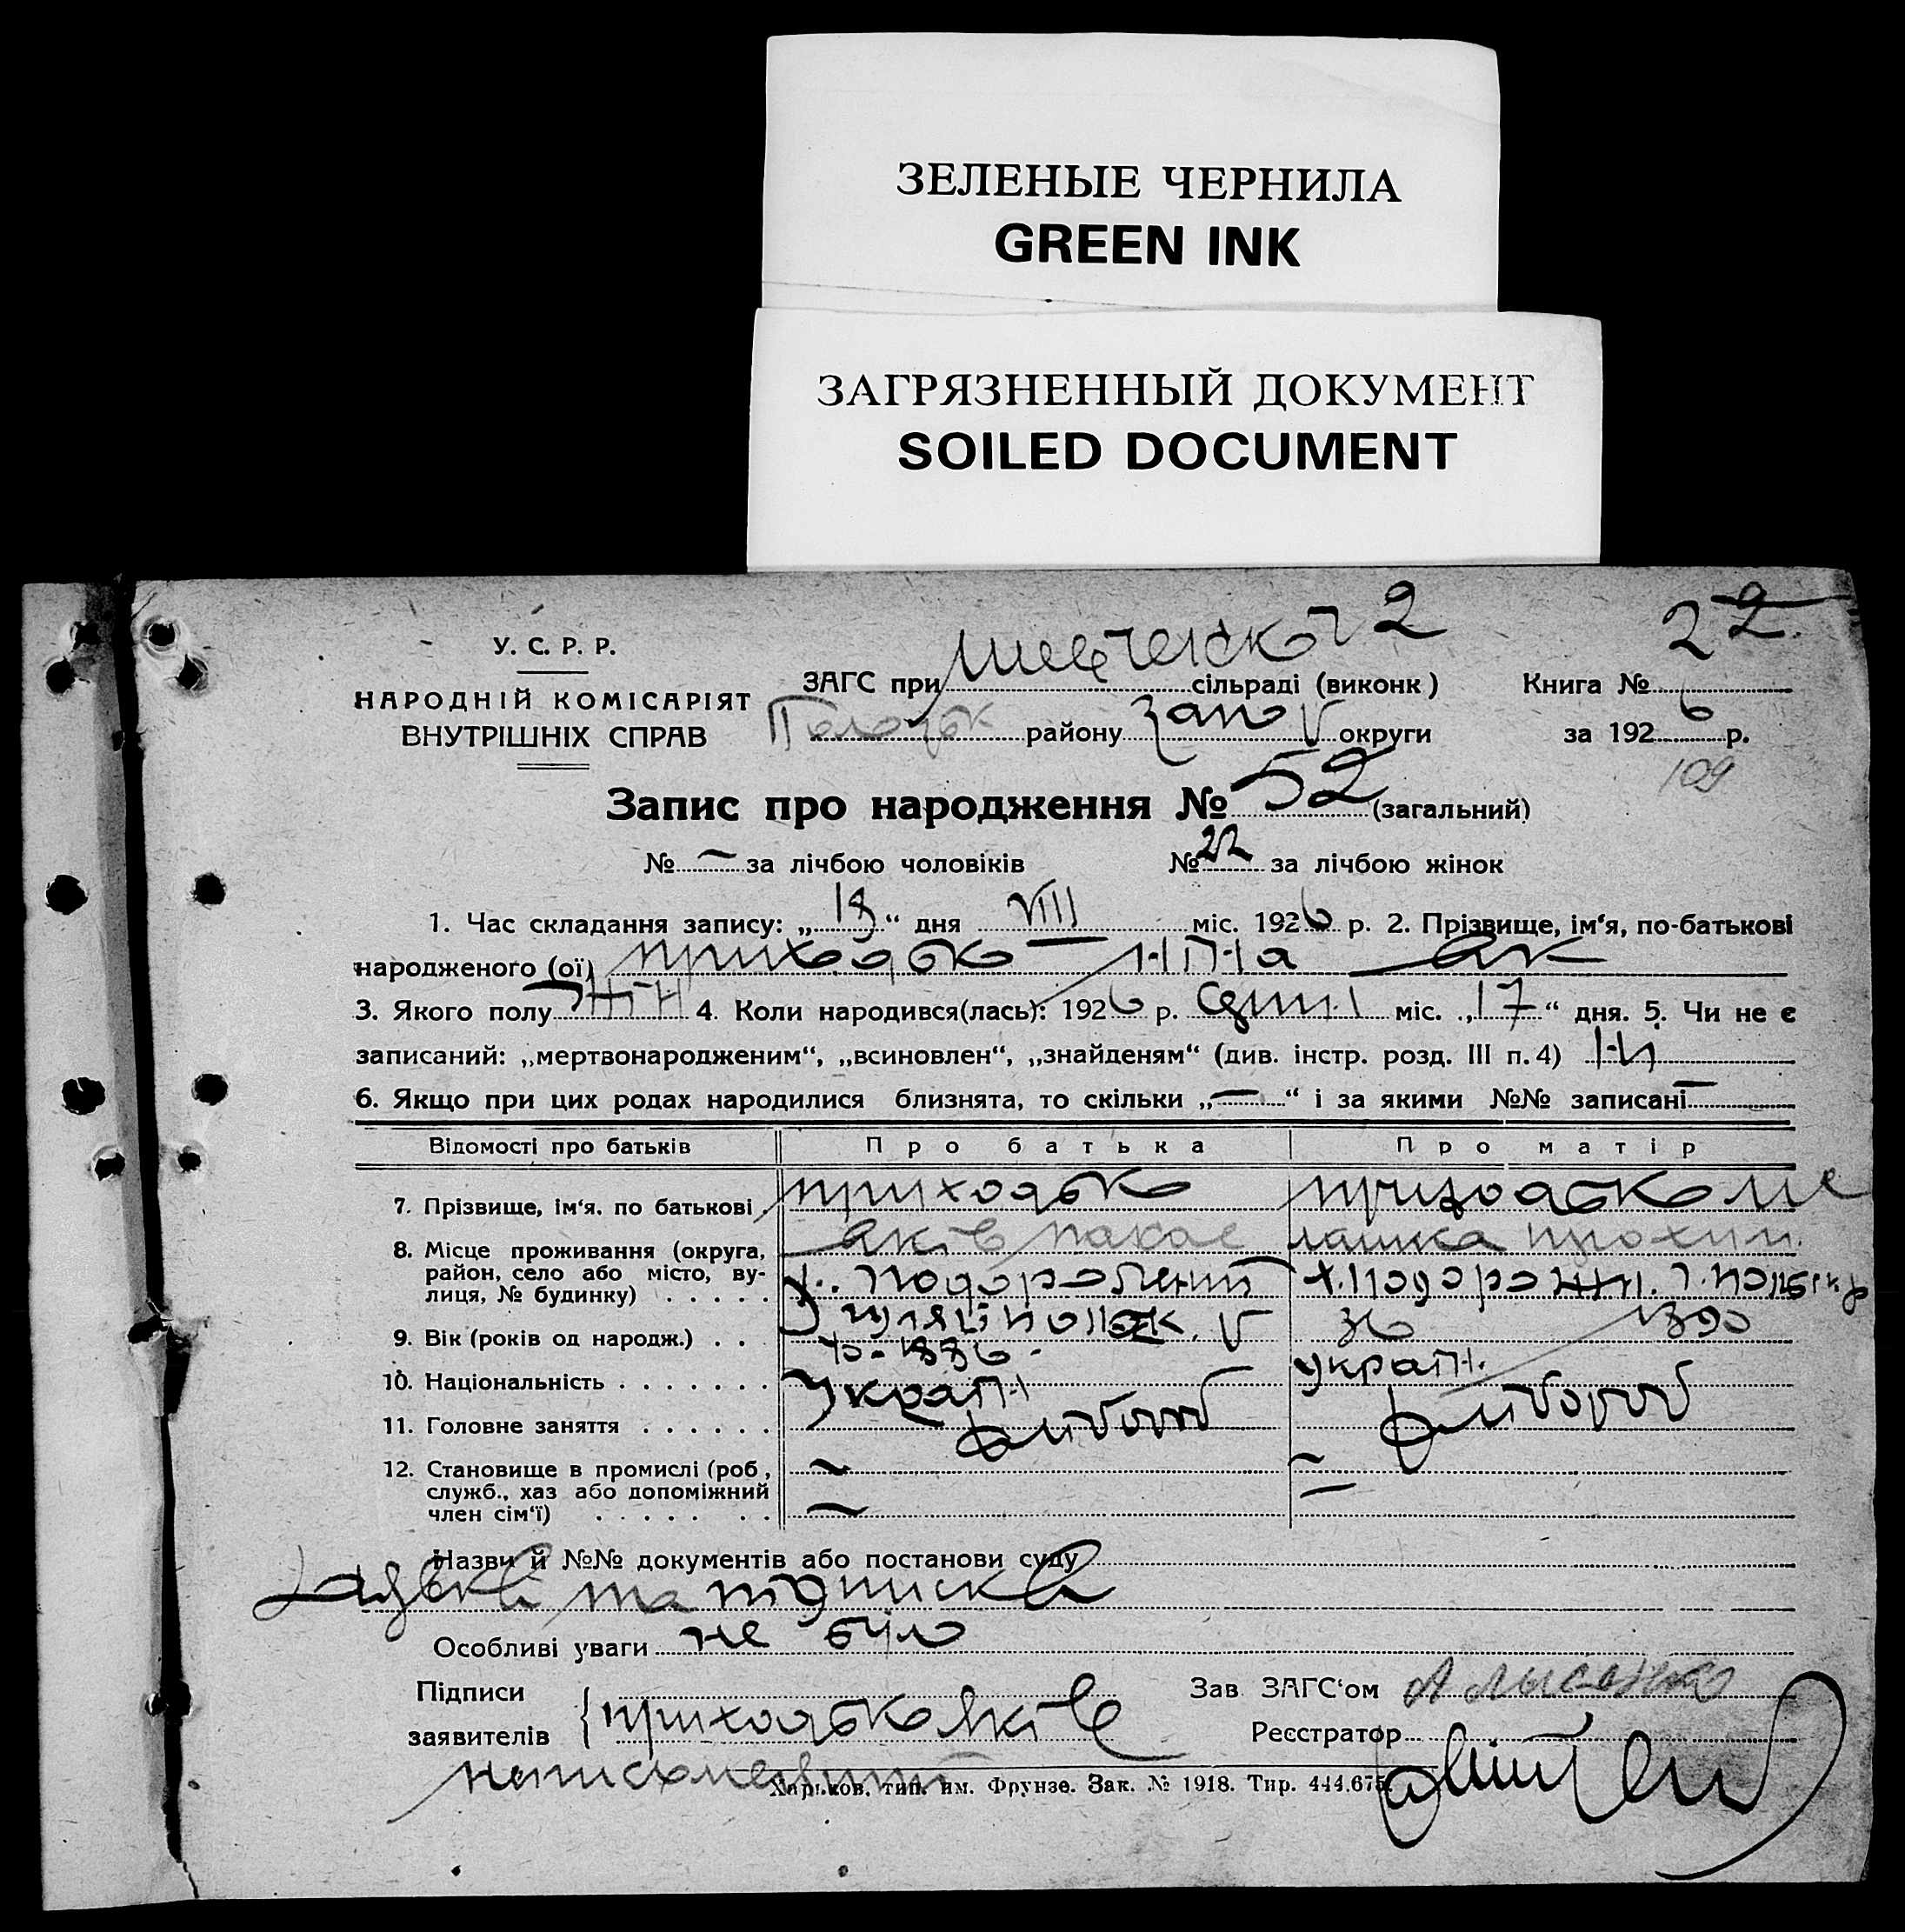 ЗЕЛЕНЫЕ ЧЕРНИЛА
GREEN INK
ЗАГРЯЗНЕННЫЙ ДОКУМЕНТ
SOILED DOCUMENT
22.
У. С. Р. Р.
НАРОДНІЙ КОМІСАРІЯТ
ВНУТРІШНІХ СПРАВ
ЗАГС при сільраді (виконк) Книга №
району Запор округи за 1926 р.
109
Запис про народження № 52 (загальний)
№ — за лічбою чоловіків № 22 за лічбою жінок
1. Час складання запису: „18“ дня VIII міс. 1926 р. 2. Прізвище, ім‘я, по-батькові
народженого (ої) Приходько Ніна Як
3. Якого полу жін 4. Коли народився(лась): 1926 р. серпн. міс. „17“ дня. 5. Чи не є
записаний: „мертвонародженим“, „всиновлен“, „знайденям“ (див. інстр. розд. III п. 4) Ні
6. Якщо при цих родах народилися близнята, то скільки „—“ і за якими №№ записані —
Відомості про батьків Про батька Про матір
7. Прізвище, ім‘я. по батькові Приходько Приходько Ме
Яків лашка Прохим.
8. Місце проживання (округа,
район, село або місто, ву-
лиця, № будинку)
9. Вік (років од народж.) 1886 36 1890
10. Національність Україн Україн.
11. Головне заняття хлібороб хлібороб
12. Становище в промислі (роб,
служб., хаз або допоміжний
член сім‘ї) — —
Назви й №№ документів або постанови суду
Заявка та підписка
Особливі уваги не було
Підписи Зав ЗАГС‘ом
заявителів Приходько Яків Реєстратор
неписьменний
Харьков, тип. им. Фрунзе. Зак. № 1918. Тир. 444.675.